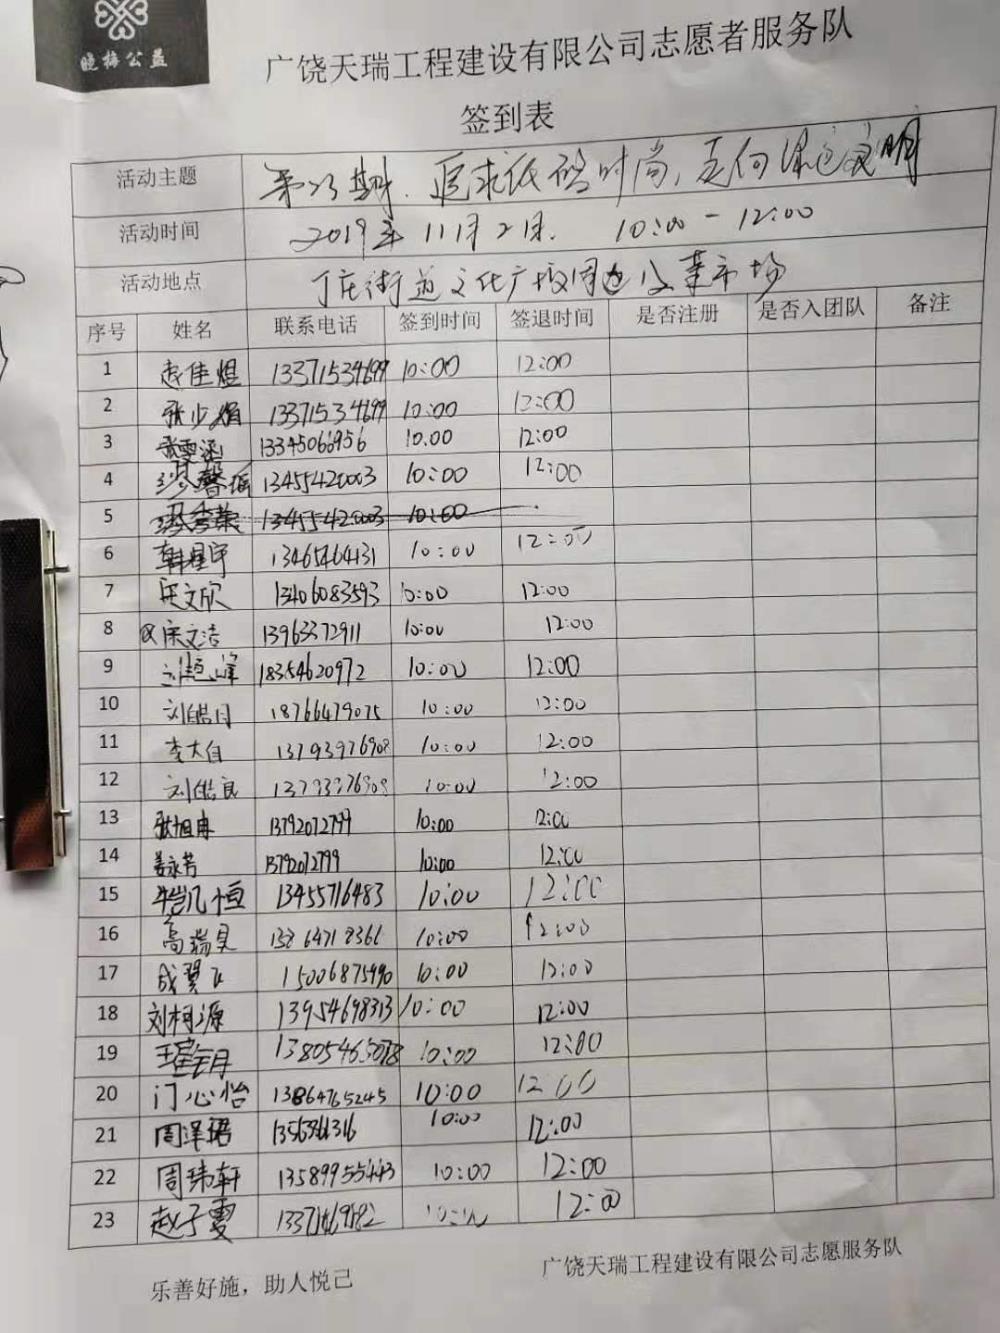 晓梅公益
广饶天瑞工程建设有限公司志愿者服务队
签到表
活动主题 第23期. 追求低碳时尚,走向绿色文明
活动时间 2019年11月2日. 10:00-12:00
活动地点 丁庄街道文化广场周边及菜市场
序号 姓名 联系电话 签到时间 签退时间 是否注册 是否入团队 备注
1 赵佳煜 13371534699 10:00 12:00
2 张少娟 13371534699 10:00 12:00
3 13345066956 10.00 12:00
4 13455420003 10:00 12:00
5 13455420003 10:00
6 韩星宇 13465464131 10:00 12:00
7 宋文欣 13406083593 10:00 12:00
8 宋文洁 13963372911 10:00 12:00
9 刘恒峰 18354620972 10:00 12:00
10 刘皓月 18766479075 10:00 12:00
11 13793976908 10:00 12:00
12 刘皓良 13793976908 10:00 12:00
13 张旭冉 13792072799 10:00 12:00
14 姜永芳 13792072799 10:00 12:00
15 凯恒 13455716483 10:00 12:00
16 高瑞昊 10:00 12:00
17 成翼飞 15006875990 10:00 12:00
18 刘柯源 13954698313 10:00 12:00
19 10:00 12:00
20 门心怡 13864765245 10:00 12:00
21 周泽珺 10:00 12:00
22 周玮轩 13589955443 10:00 12:00
23 赵子雯 10:00 12:00
乐善好施，助人悦己
广饶天瑞工程建设有限公司志愿服务队